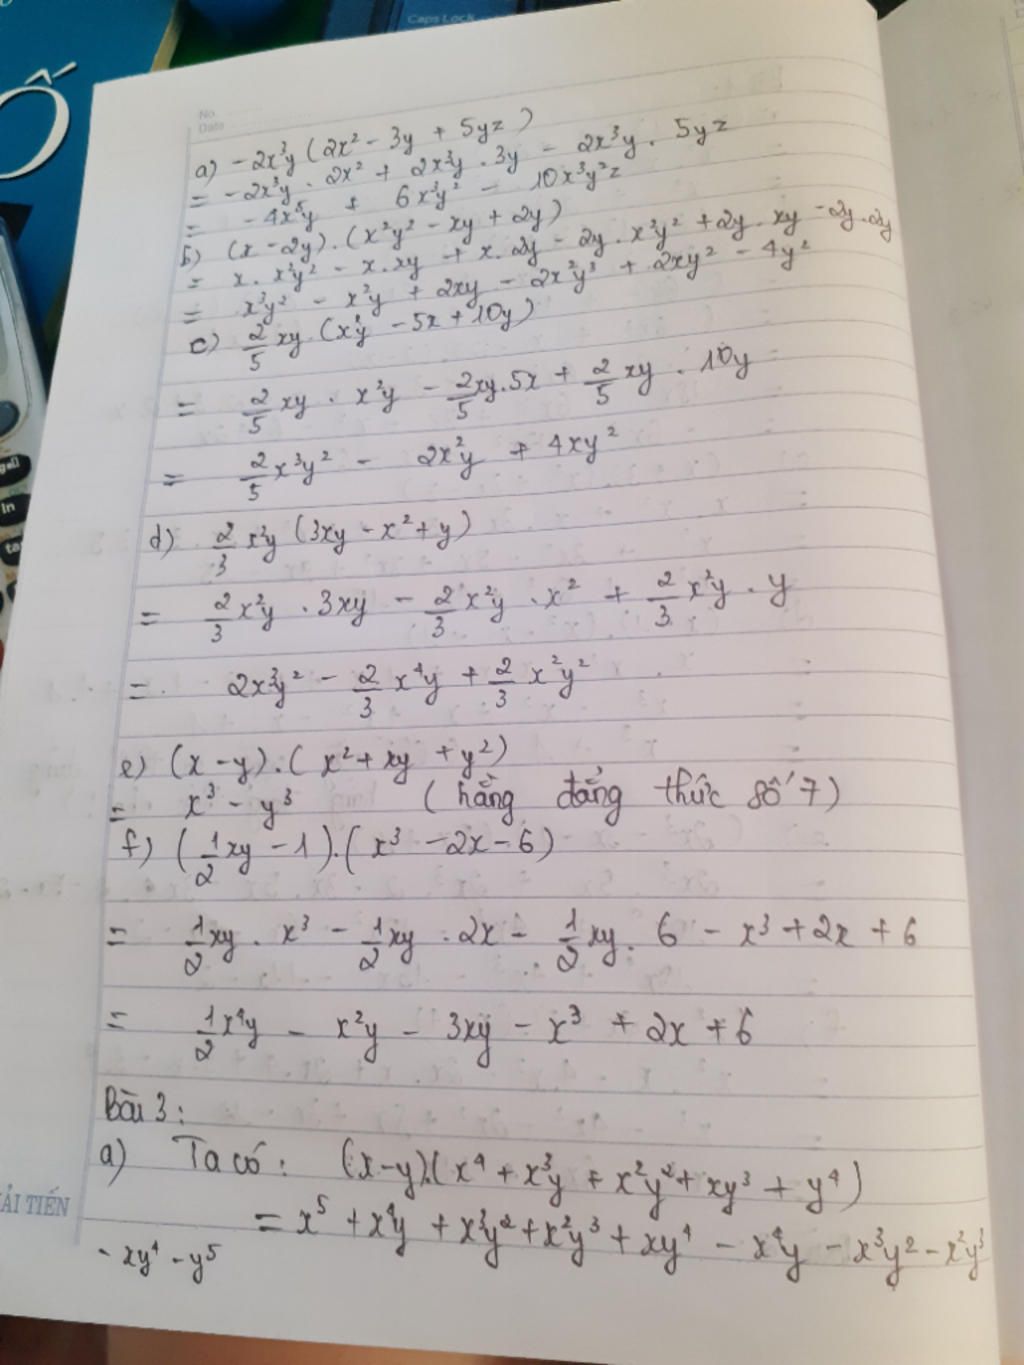 Caps Lock
Ố
No.
Date
a) -2x³y (2x² - 3y + 5yz)
= -2x³y . 2x² + 2x³y . 3y - 2x³y . 5yz
= -4x⁵y + 6x³y² - 10x³y²z
b) (x - 2y) . (x²y² - xy + 2y)
= x . x²y² - x . xy + x . 2y - 2y . x²y² + 2y . xy - 2y . 2y
= x³y² - x²y + 2xy - 2x²y³ + 2xy² - 4y²
c) 2/5 xy (x²y - 5x + 10y)
= 2/5 xy . x²y - 2/5 xy . 5x + 2/5 xy . 10y
= 2/5 x³y² - 2x²y + 4xy²
d) 2/3 x²y (3xy - x² + y)
= 2/3 x²y . 3xy - 2/3 x²y . x² + 2/3 x²y . y
= 2x³y² - 2/3 x⁴y + 2/3 x²y²
e) (x - y) . (x² + xy + y²)
= x³ - y³ (hằng đẳng thức số 7)
f) (1/2 xy - 1) . (x³ - 2x - 6)
= 1/2 xy . x³ - 1/2 xy . 2x - 1/2 xy . 6 - x³ + 2x + 6
= 1/2 x⁴y - x²y - 3xy - x³ + 2x + 6
Bài 3:
a) Ta có: (x - y).(x⁴ + x³y + x²y² + xy³ + y⁴)
= x⁵ + x⁴y + x³y² + x²y³ + xy⁴ - x⁴y - x³y² - x²y³
- xy⁴ - y⁵
ẢI TIẾN